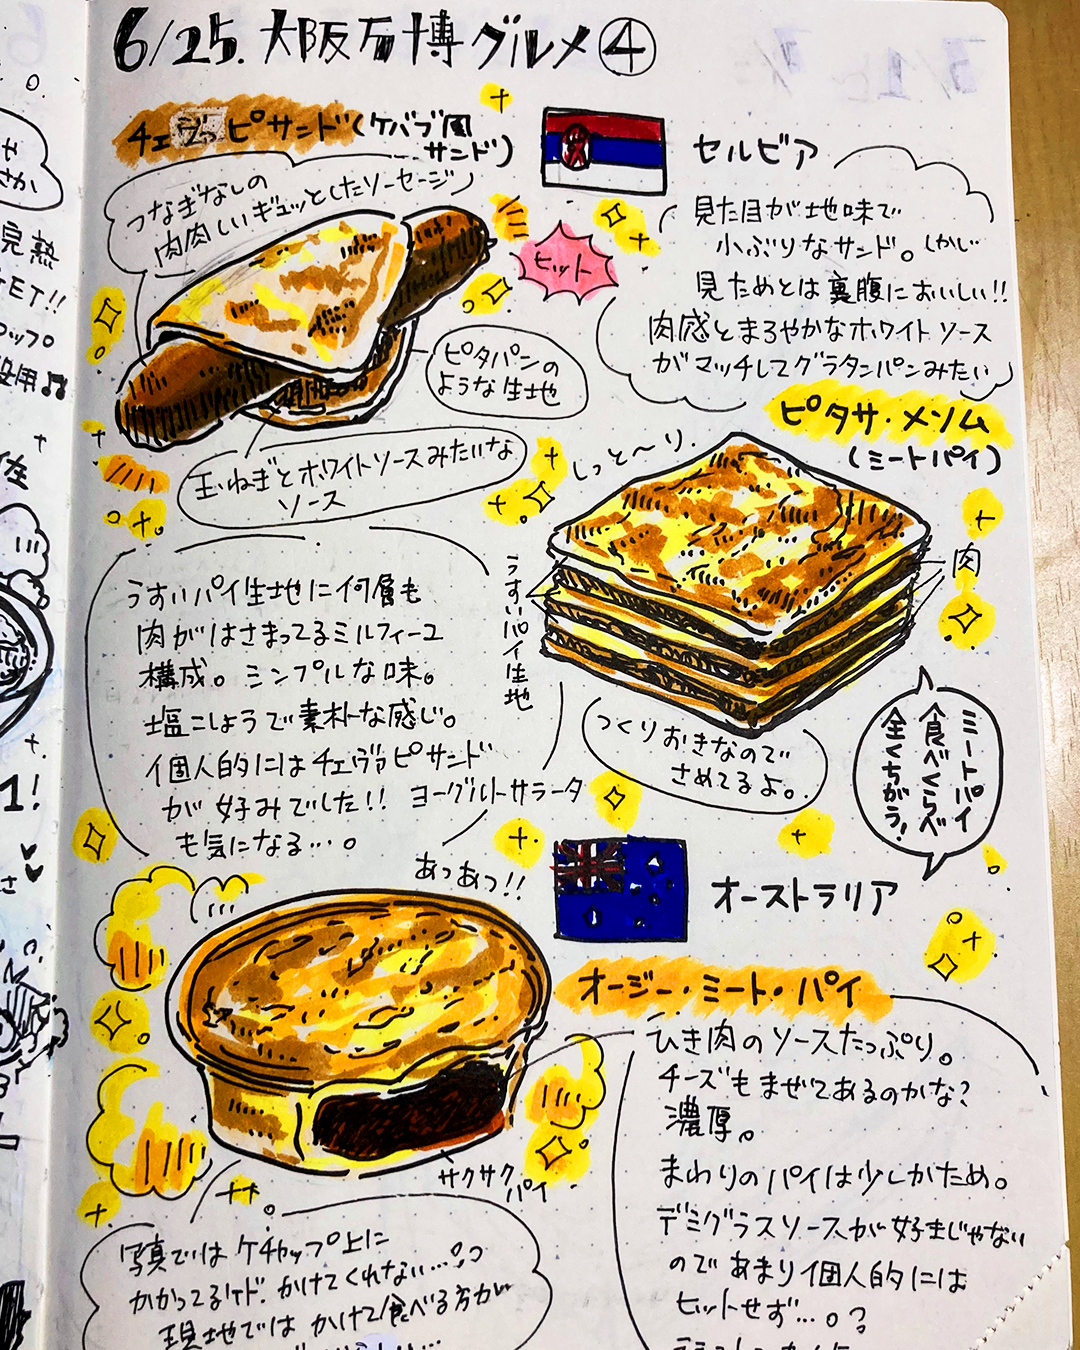 6/25. 大阪万博グルメ④
チェヴァピサンド(ケバブ風
サンド)
セルビア
つなぎなしの
肉肉しいギュッとしたソーセージ
ヒット
見た目が地味で
小ぶりなサンド。しかし
見ためとは裏腹においしい!!
肉感とまろやかなホワイトソース
がマッチしてグラタンパンみたい
ピタパンの
ような生地
玉ねぎとホワイトソースみたいな
ソース
ピタサ・メソム
(ミートパイ)
しっと〜り.
肉
うすいパイ生地
うすいパイ生地に何層も
肉がはさまってるミルフィーユ
構成。シンプルな味。
塩こしょうで素朴な感じ。
個人的にはチェヴァピサンド
が好みでした!! ヨーグルトサラータ
も気になる…。
つくりおきなので
さめてるよ。
ミートパイ
食べくらべ
全くちがう!
オーストラリア
あつあつ!!
オージー・ミート・パイ
ひき肉のソースたっぷり。
チーズもまぜてあるのかな?
濃厚。
まわりのパイは少しかため。
デミグラスソースが好きじゃない
のであまり個人的には
ヒットせず…。
サクサク
パイ
写真ではケチャップ上に
かかってるけど、かけてくれない…。
現地ではかけて食べる方が
や
さか
完熟
GET!!
ップ。
使用♫
1!
さ